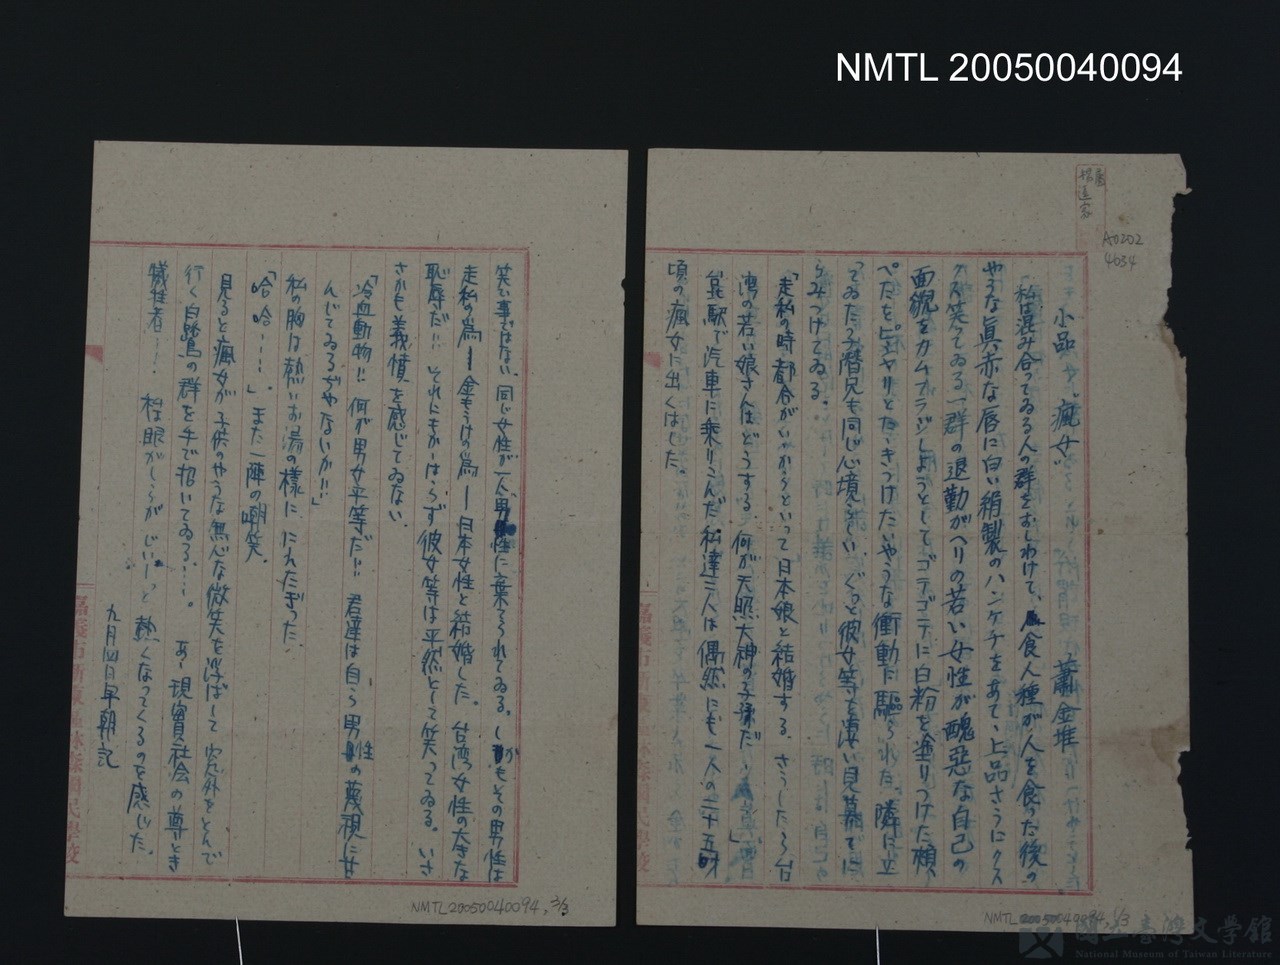 NMTL 20050040094
A0202
4634
小品 "瘋女" 蕭金堆
私は混み合ってゐる人の群をおしわけて、食人種が人を食った後の
やうな眞赤な唇に白い絹製のハンケチをあて、上品さうにクス
クス笑ってゐる一群の退勤がへりの若い女性が醜惡な自己の
面貌をカムフラジしようとしてゴテゴテに白粉を塗りつけた頬
ぺたをピシャリとたゝきつけたいやうな衝動に驅られた。隣に立
ってゐた子潛兄も同じ心境
ぐっと彼女等を
らみつけてゐる。
「走私の時都合がいゝからといって日本娘と結婚する、さうしたら台
湾の若い娘さん任どうする、何が天照大神の子孫だ!」
駅で汽車に乗りこんだ私達三人は偶然にも一人の二十五才
頃の瘋女に出くはした。
NMTL20050040094, 1/3
笑い事ではない、同じ女性が一人の男性に棄てられてゐる。しかもその男性は
走私の為ー金もうけの為ー日本女性と結婚した。台湾女性の大きな
恥辱だ!! それにもかゝはらず彼女等は平然として笑ってゐる。いさ
さかも義憤を感じてゐない。
「冷血動物!! 何が男女平等だ!! 君達は自ら男性の蔑視に甘
んじてゐるぢやないか!!」
私の胸は熱いお湯の様に、にえたぎった。
「哈哈……」また一陣の嘲笑。
見ると瘋女が子供のやうな無心な微笑を浮ばして窓外をとんで
行く白鷺の群を手で招いてゐる……。 あゝ現實社会の尊とき
犠牲者……。 私は眼がしらがじいーっと熱くなってくるのを感じた。
九月四日早朝記
NMTL20050040094, 3/3
國立臺灣文學館
National Museum of Taiwan Literature